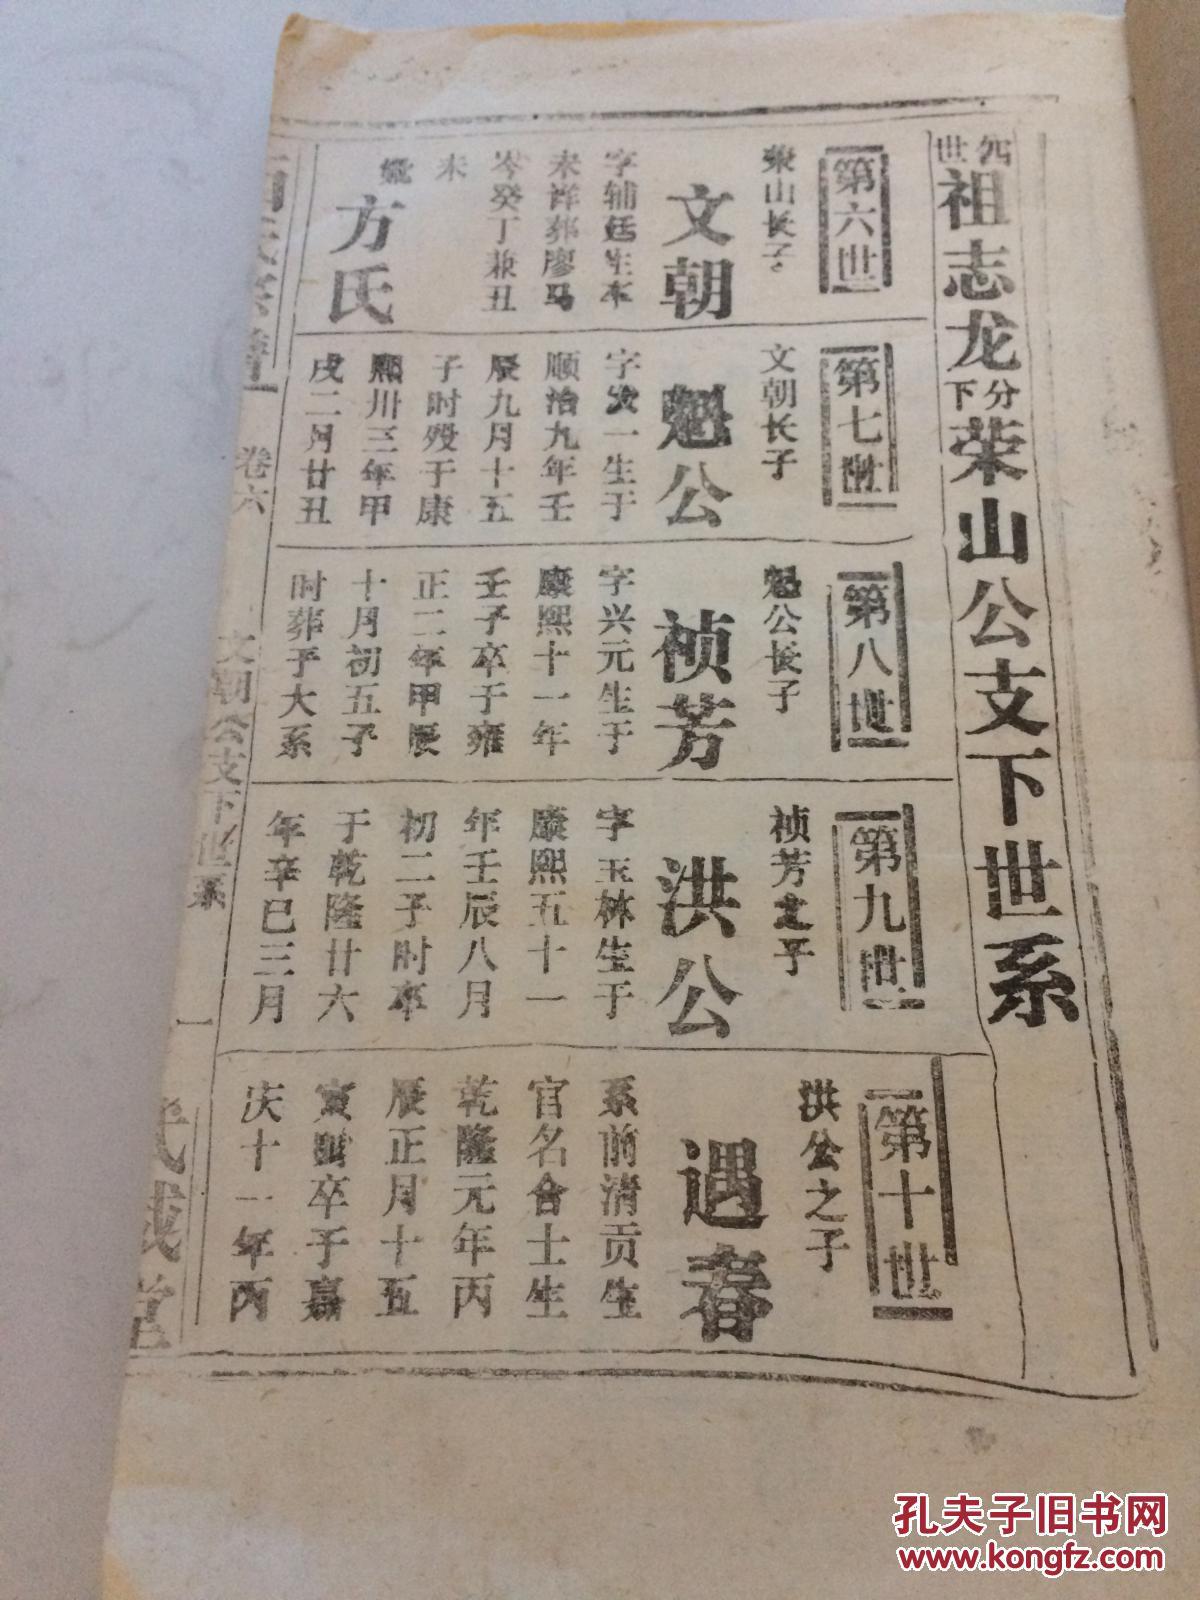 四世祖志龙分下荣山公支下世系
第六世
荣山长子
文朝
字辅廷生卒
未详葬廖马
岑癸丁兼丑
未
方氏
第七世
文朝长子
魁公
字发一生于
顺治九年壬
辰九月十五
子时殁于康
熙卅三年甲
戌二月廿丑
第八世
魁公长子
祯芳
字兴元生于
康熙十一年
壬子卒于雍
正二年甲辰
十月初五子
时葬于大系
第九世
祯芳之子
洪公
字玉林生于
康熙五十一
年壬辰八月
初二子时卒
于乾隆廿六
年辛巳三月
第十世
洪公之子
遇春
系前清贡生
官名合士生
乾隆元年丙
辰正月十五
寅时卒于嘉
庆十一年丙
卷六
文朝公支下世系
一
孔夫子旧书网
www.kongfz.com